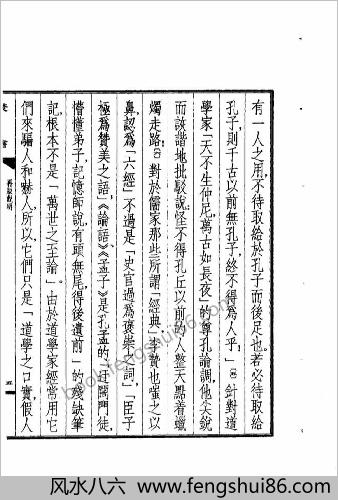 有一人之用,不待取給於孔子而後足也。若必待取給
孔子,則千古以前無孔子,終不得爲人乎?」針對道
學家「天不生仲尼,萬古如長夜」的尊孔論調,他尖銳
而詼諧地批駁說:怪不得孔丘以前的人整天點着蠟
燭走路。對於儒家那些所謂「經典」,李贄也嗤之以
鼻,認爲「六經」不過是「史官過爲褒崇之詞」,「臣子
極爲贊美之語」,《論語》《孟子》是孔孟的「迂闊門徒,
懵懂弟子,記憶師說,有頭無尾,得後遺前」的殘缺筆
記,根本不是「萬世之至論」。由於道學家經常用它
們來騙人和嚇人,所以它們只是「道學之口實,假人
焚書
重版說明
五
book.fengshui86.com
风水八六 - fengshui86.com